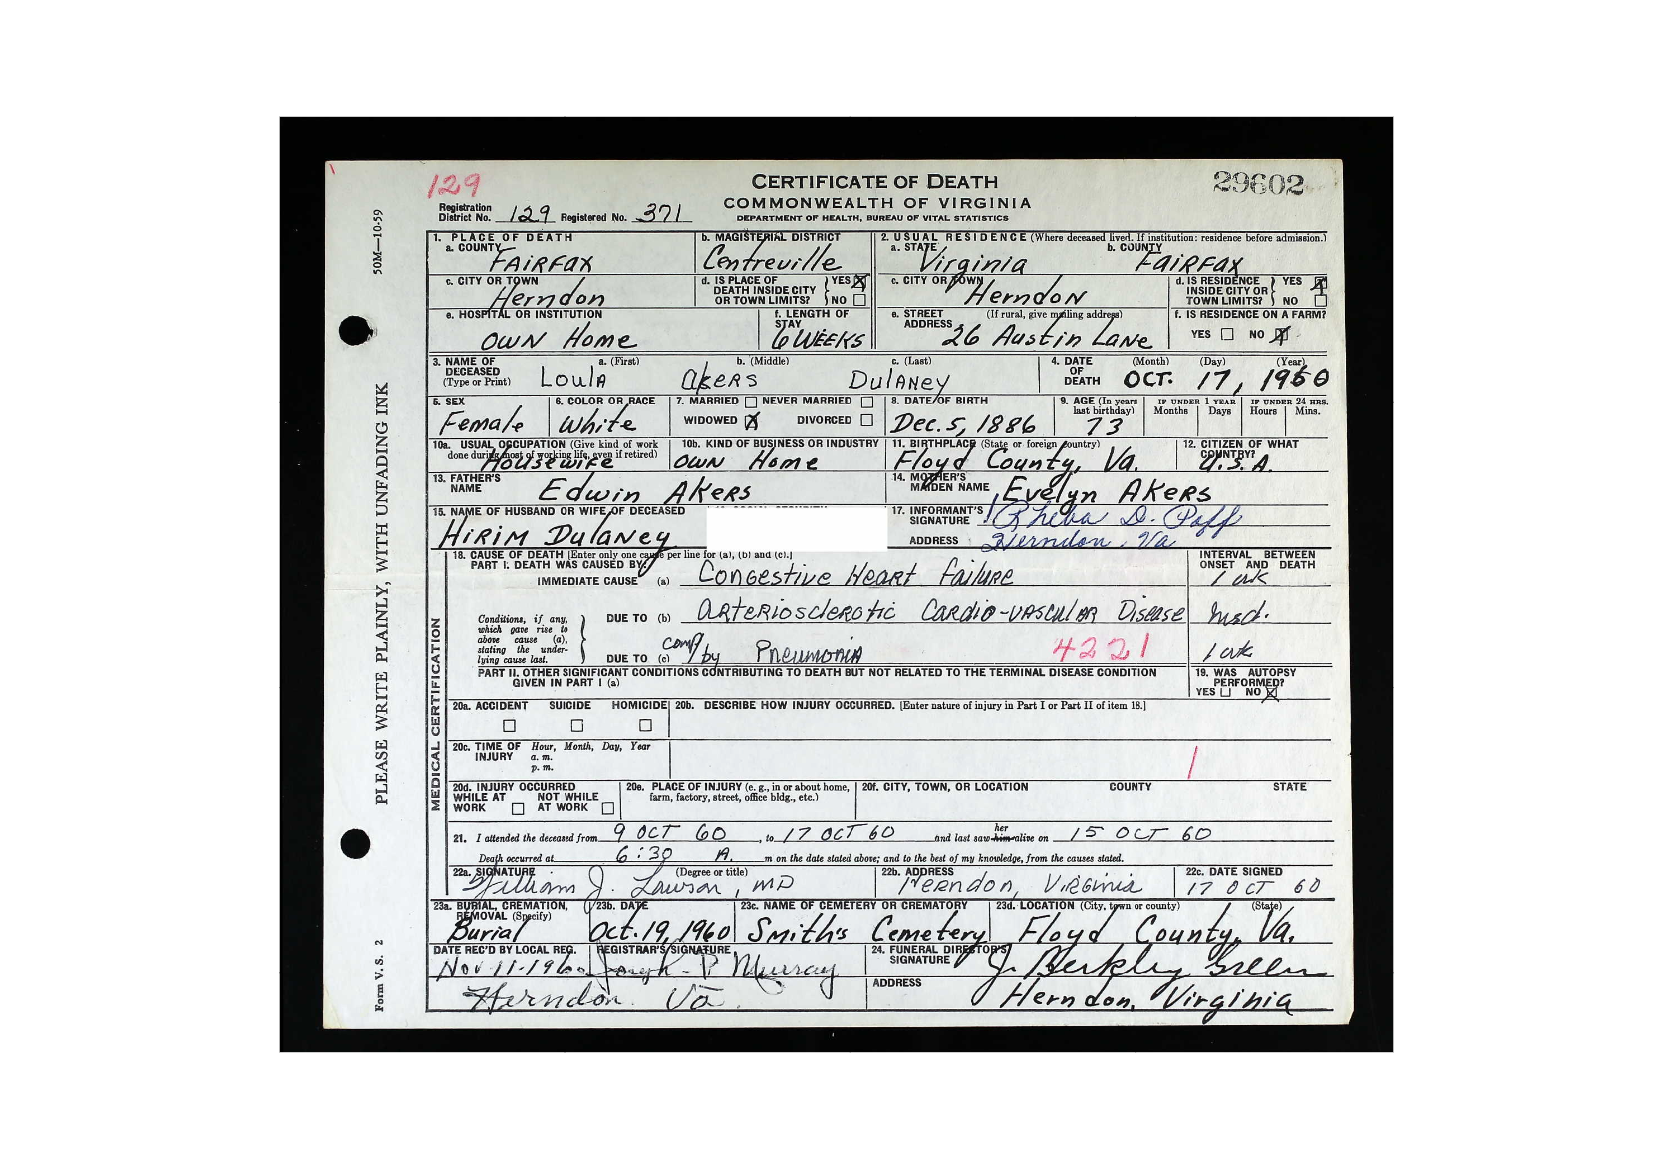 129
CERTIFICATE OF DEATH
29602
COMMONWEALTH OF VIRGINIA
DEPARTMENT OF HEALTH, BUREAU OF VITAL STATISTICS
Registration District No. 129 Registered No. 371
50M—10-59
PLEASE WRITE PLAINLY, WITH UNFADING INK
Form V. S. 2
1. PLACE OF DEATH
a. COUNTY FAIRFAX
b. MAGISTERIAL DISTRICT Centreville
2. USUAL RESIDENCE (Where deceased lived. If institution: residence before admission.)
a. STATE Virginia b. COUNTY FAIRFAX
c. CITY OR TOWN Herndon
d. IS PLACE OF DEATH INSIDE CITY OR TOWN LIMITS? YES X NO
c. CITY OR TOWN Herndon
d. IS RESIDENCE INSIDE CITY OR TOWN LIMITS? YES X NO
e. HOSPITAL OR INSTITUTION OWN Home
f. LENGTH OF STAY 6 WEEKS
e. STREET ADDRESS (If rural, give mailing address) 26 Austin Lane
f. IS RESIDENCE ON A FARM? YES NO X
3. NAME OF DECEASED (Type or Print) a. (First) Loula b. (Middle) Akers c. (Last) Dulaney
4. DATE OF DEATH (Month) (Day) (Year) OCT. 17, 1960
5. SEX Female
6. COLOR OR RACE White
7. MARRIED NEVER MARRIED WIDOWED X DIVORCED
8. DATE OF BIRTH Dec. 5, 1886
9. AGE (In years last birthday) 73
IF UNDER 1 YEAR Months Days
IF UNDER 24 HRS. Hours Mins.
10a. USUAL OCCUPATION (Give kind of work done during most of working life, even if retired) Housewife
10b. KIND OF BUSINESS OR INDUSTRY OWN Home
11. BIRTHPLACE (State or foreign country) Floyd County, Va.
12. CITIZEN OF WHAT COUNTRY? U.S.A.
13. FATHER'S NAME Edwin Akers
14. MOTHER'S MAIDEN NAME Evelyn Akers
15. NAME OF HUSBAND OR WIFE OF DECEASED HIRIM Dulaney
17. INFORMANT'S SIGNATURE Rheba D. Poff
ADDRESS Herndon, Va
18. CAUSE OF DEATH [Enter only one cause per line for (a), (b) and (c).]
INTERVAL BETWEEN ONSET AND DEATH
PART I. DEATH WAS CAUSED BY:
IMMEDIATE CAUSE (a) Congestive Heart Failure 1 wk
MEDICAL CERTIFICATION
Conditions, if any, which gave rise to above cause (a), stating the underlying cause last.
DUE TO (b) Arteriosclerotic Cardio-vascular Disease
DUE TO (c) comp by Pneumonia 4221 1 wk
PART II. OTHER SIGNIFICANT CONDITIONS CONTRIBUTING TO DEATH BUT NOT RELATED TO THE TERMINAL DISEASE CONDITION GIVEN IN PART I (a)
19. WAS AUTOPSY PERFORMED? YES NO X
20a. ACCIDENT SUICIDE HOMICIDE
20b. DESCRIBE HOW INJURY OCCURRED. [Enter nature of injury in Part I or Part II of item 18.]
20c. TIME OF INJURY Hour, Month, Day, Year a. m. p. m.
20d. INJURY OCCURRED WHILE AT WORK NOT WHILE AT WORK
20e. PLACE OF INJURY (e. g., in or about home, farm, factory, street, office bldg., etc.)
20f. CITY, TOWN, OR LOCATION COUNTY STATE
21. I attended the deceased from 9 OCT 60, to 17 OCT 60 and last saw him her alive on 15 OCT 60
Death occurred at 6:30 A. m on the date stated above; and to the best of my knowledge, from the causes stated.
22a. SIGNATURE (Degree or title) William J. Lawson, MD
22b. ADDRESS Herndon, Virginia
22c. DATE SIGNED 17 OCT 60
23a. BURIAL, CREMATION, REMOVAL (Specify) Burial
23b. DATE Oct. 19, 1960
23c. NAME OF CEMETERY OR CREMATORY Smith's Cemetery
23d. LOCATION (City, town or county) (State) Floyd County, Va.
DATE REC'D BY LOCAL REG. Nov 11-1960
REGISTRAR'S SIGNATURE Joseph P. Murray
Herndon Va.
24. FUNERAL DIRECTOR'S SIGNATURE J. Berkley Green
ADDRESS Herndon, Virginia